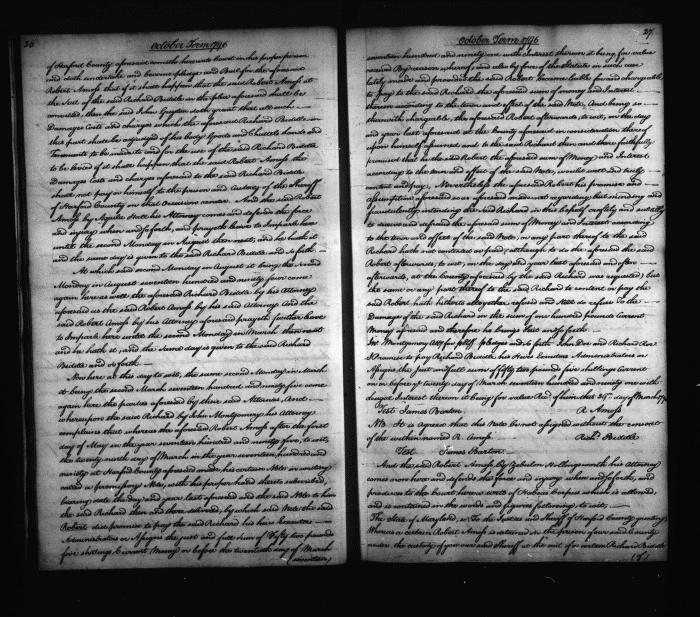 26
October Term 1796
of Harford County aforesaid cometh here into Court in his proper person
and doth undertake and become pledge and Bail for the aforesaid
Robert Amoss that if it shall happen that the said Robert Amoss at
the Suit of the said Richard Biddle in the plea aforesaid shall be
convicted, then the said John grants that all such
Damages Costs and charges which the aforesaid Richard Biddle in
that part shall be adjudged of his body Goods and Chattels Lands and
Tenements to be made and for the use of the said Richard Biddle
to be levied if it shall happen that the said Robert Amoss the
Damages Costs and charges aforesaid to the said Richard Biddle
shall not pay or himself to the prison and custody of the Sheriff
of Harford County on that occasion render. And the said Robert
Amoss by Aquila Hall his Attorney comes and defends the force
and injury when and so forth, and prayeth leave to Imparle here
until the second Monday in August then next, and he hath it
and the same day is given to the said Richard Biddle and so forth
At which said second Monday in August it being the second
Monday in August seventeen hundred and ninety four came
again here as well the aforesaid Richard Biddle by his Attorney
aforesaid as the said Robert Amoss by his said Attorney and the
said Robert Amoss by his Attorney aforesaid prayeth further leave
to Imparle here until the second Monday in March then next
and he hath it, and the same day is given to the said Richard
Biddle and so forth
Now here at this day to wit, the same second Monday in March
it being the second March seventeen hundred and ninety five came
again here the parties aforesaid by their said Attornies, And
whereupon the said Richard by John Montgomery his Attorney
complains that whereas the aforesaid Robert Amoss after the first
day of May in the year seventeen hundred and ninety five, to wit,
the twenty ninth day of March in the year seventeen hundred and
ninety at Harford County aforesaid made his certain Note in writing
called a promissory Note, with his proper hand thereto subscribed,
bearing date the day and year last aforesaid and the said Note to him
the said Richard then and there delivered, by which said Note the said
Robert did promise to pay the said Richard his heirs Executors
Administrators or Assigns the just and full sum of Fifty two pounds
five shillings Current Money or before the twentieth day of March
(seventeen)
27
October Term 1796
seventeen hundred and ninety one with Interest thereon it being for value
received By reason whereof and also by force of the Statute in such case
lately made and provided the said Robert became liable for and chargeable
to pay to the said Richard the aforesaid sum of money and Interest
thereon according to the tenor and effect of the said Note, And being so
therewith chargeable, the aforesaid Robert afterwards, to wit, on the day
and year last aforesaid at the County aforesaid in consideration thereof
upon himself assumed and to the said Richard then and there faithfully
promised that he the said Robert the aforesaid sum of Money and Interest
according to the tenor and effect of the said Note, would well and truly
content and pay, Nevertheless the aforesaid Robert his promise and
assumption aforesaid so as aforesaid made not regarding but minding and
fraudulently intending the said Richard in this behalf craftily and subtilly
to deceive and defraud the aforesaid sum of Money and Interest according
to the tenor and effect of the said Note, or any part thereof to the said
Richard hath not contented or paid, although to do this the aforesaid the said
Robert afterwards, to wit, on the day and year last aforesaid and often
afterwards, at the County aforesaid by the said Richard was requested, but
the same or any part thereof to the said Richard to content or pay the
said Robert hath hitherto altogether refused and still do refuse To the
Damage of the said Richard in the sum of one hundred pounds Current
Money aforesaid and therefore he brings this Suit and so forth
Jno: Montgomery Atty for pltff pledges and so forth John Doe and Richard Roe
I Promise to pay Richard Biddle his Heirs Executors Administrators or
Assigns the just and full sum of fifty two pounds five shillings Current
on or before ye twenty day of March seventeen hundred and ninety one with
Interest thereon it being for value Recd. of him this 29th day of March
Test James Barton R Amoss
NB. It is agreed that this Note be not assigned without the consent
of the within named R. Amoss Richd. Biddle
Test James Barton
And the said Robert Amoss by Zebulon Hollingsworth his Attorney
comes now here and defends the force and injury when and so forth, and
produces to the Court here a write of Habeas Corpus which is allowed,
and is contained in the words and figures following, to wit,
The State of Maryland, ss, To the Justices and Sheriff of Harford County greeting
Whereas a certain Robert Amoss is detained in the prison of our said County
under the custody of you our said Sheriff at the suit of a certain Richard Biddle